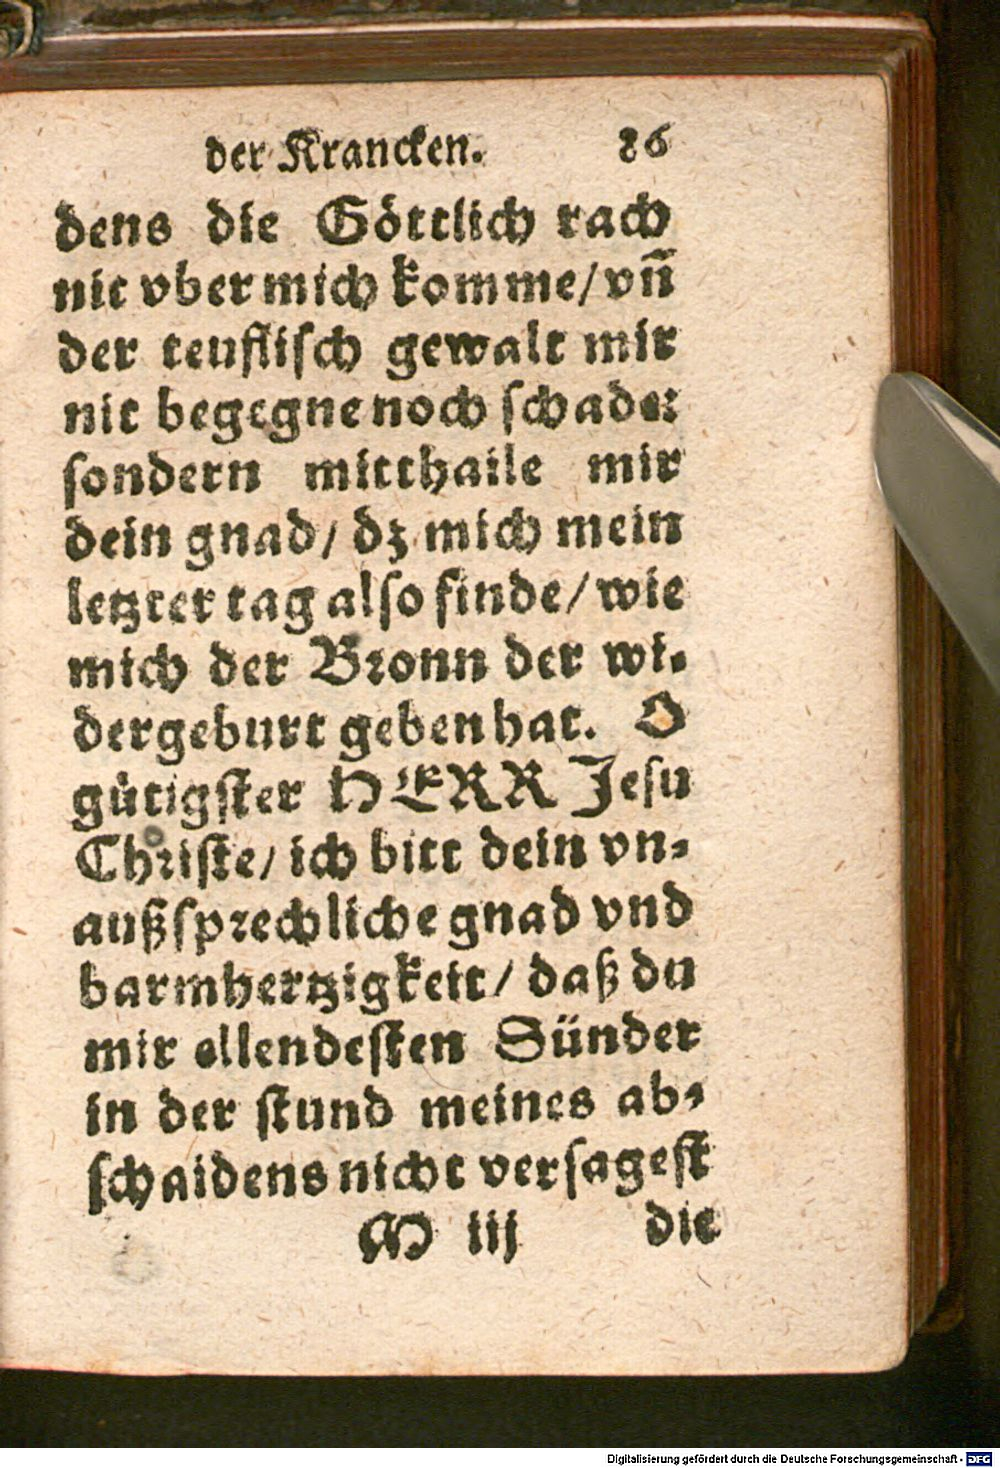 der Krancken. 86
dens die Göttlich rach
nit vber mich komme/ vñ
der teuflisch gewalt mir
nit begegne noch schade:
sondern mitthaile mir
dein gnad/ dz mich mein
letzter tag also finde/ wie
mich der Bronn der wi-
dergeburt geben hat. O
gütigster HERR Jesu
Christe/ ich bitt dein vn-
außsprechliche gnad vnd
barmhertzigkeit/ daß du
mir ellendesten Sünder
in der stund meines ab-
schaidens nicht versagest
M iij die
Digitalisierung gefördert durch die Deutsche Forschungsgemeinschaft - DFG